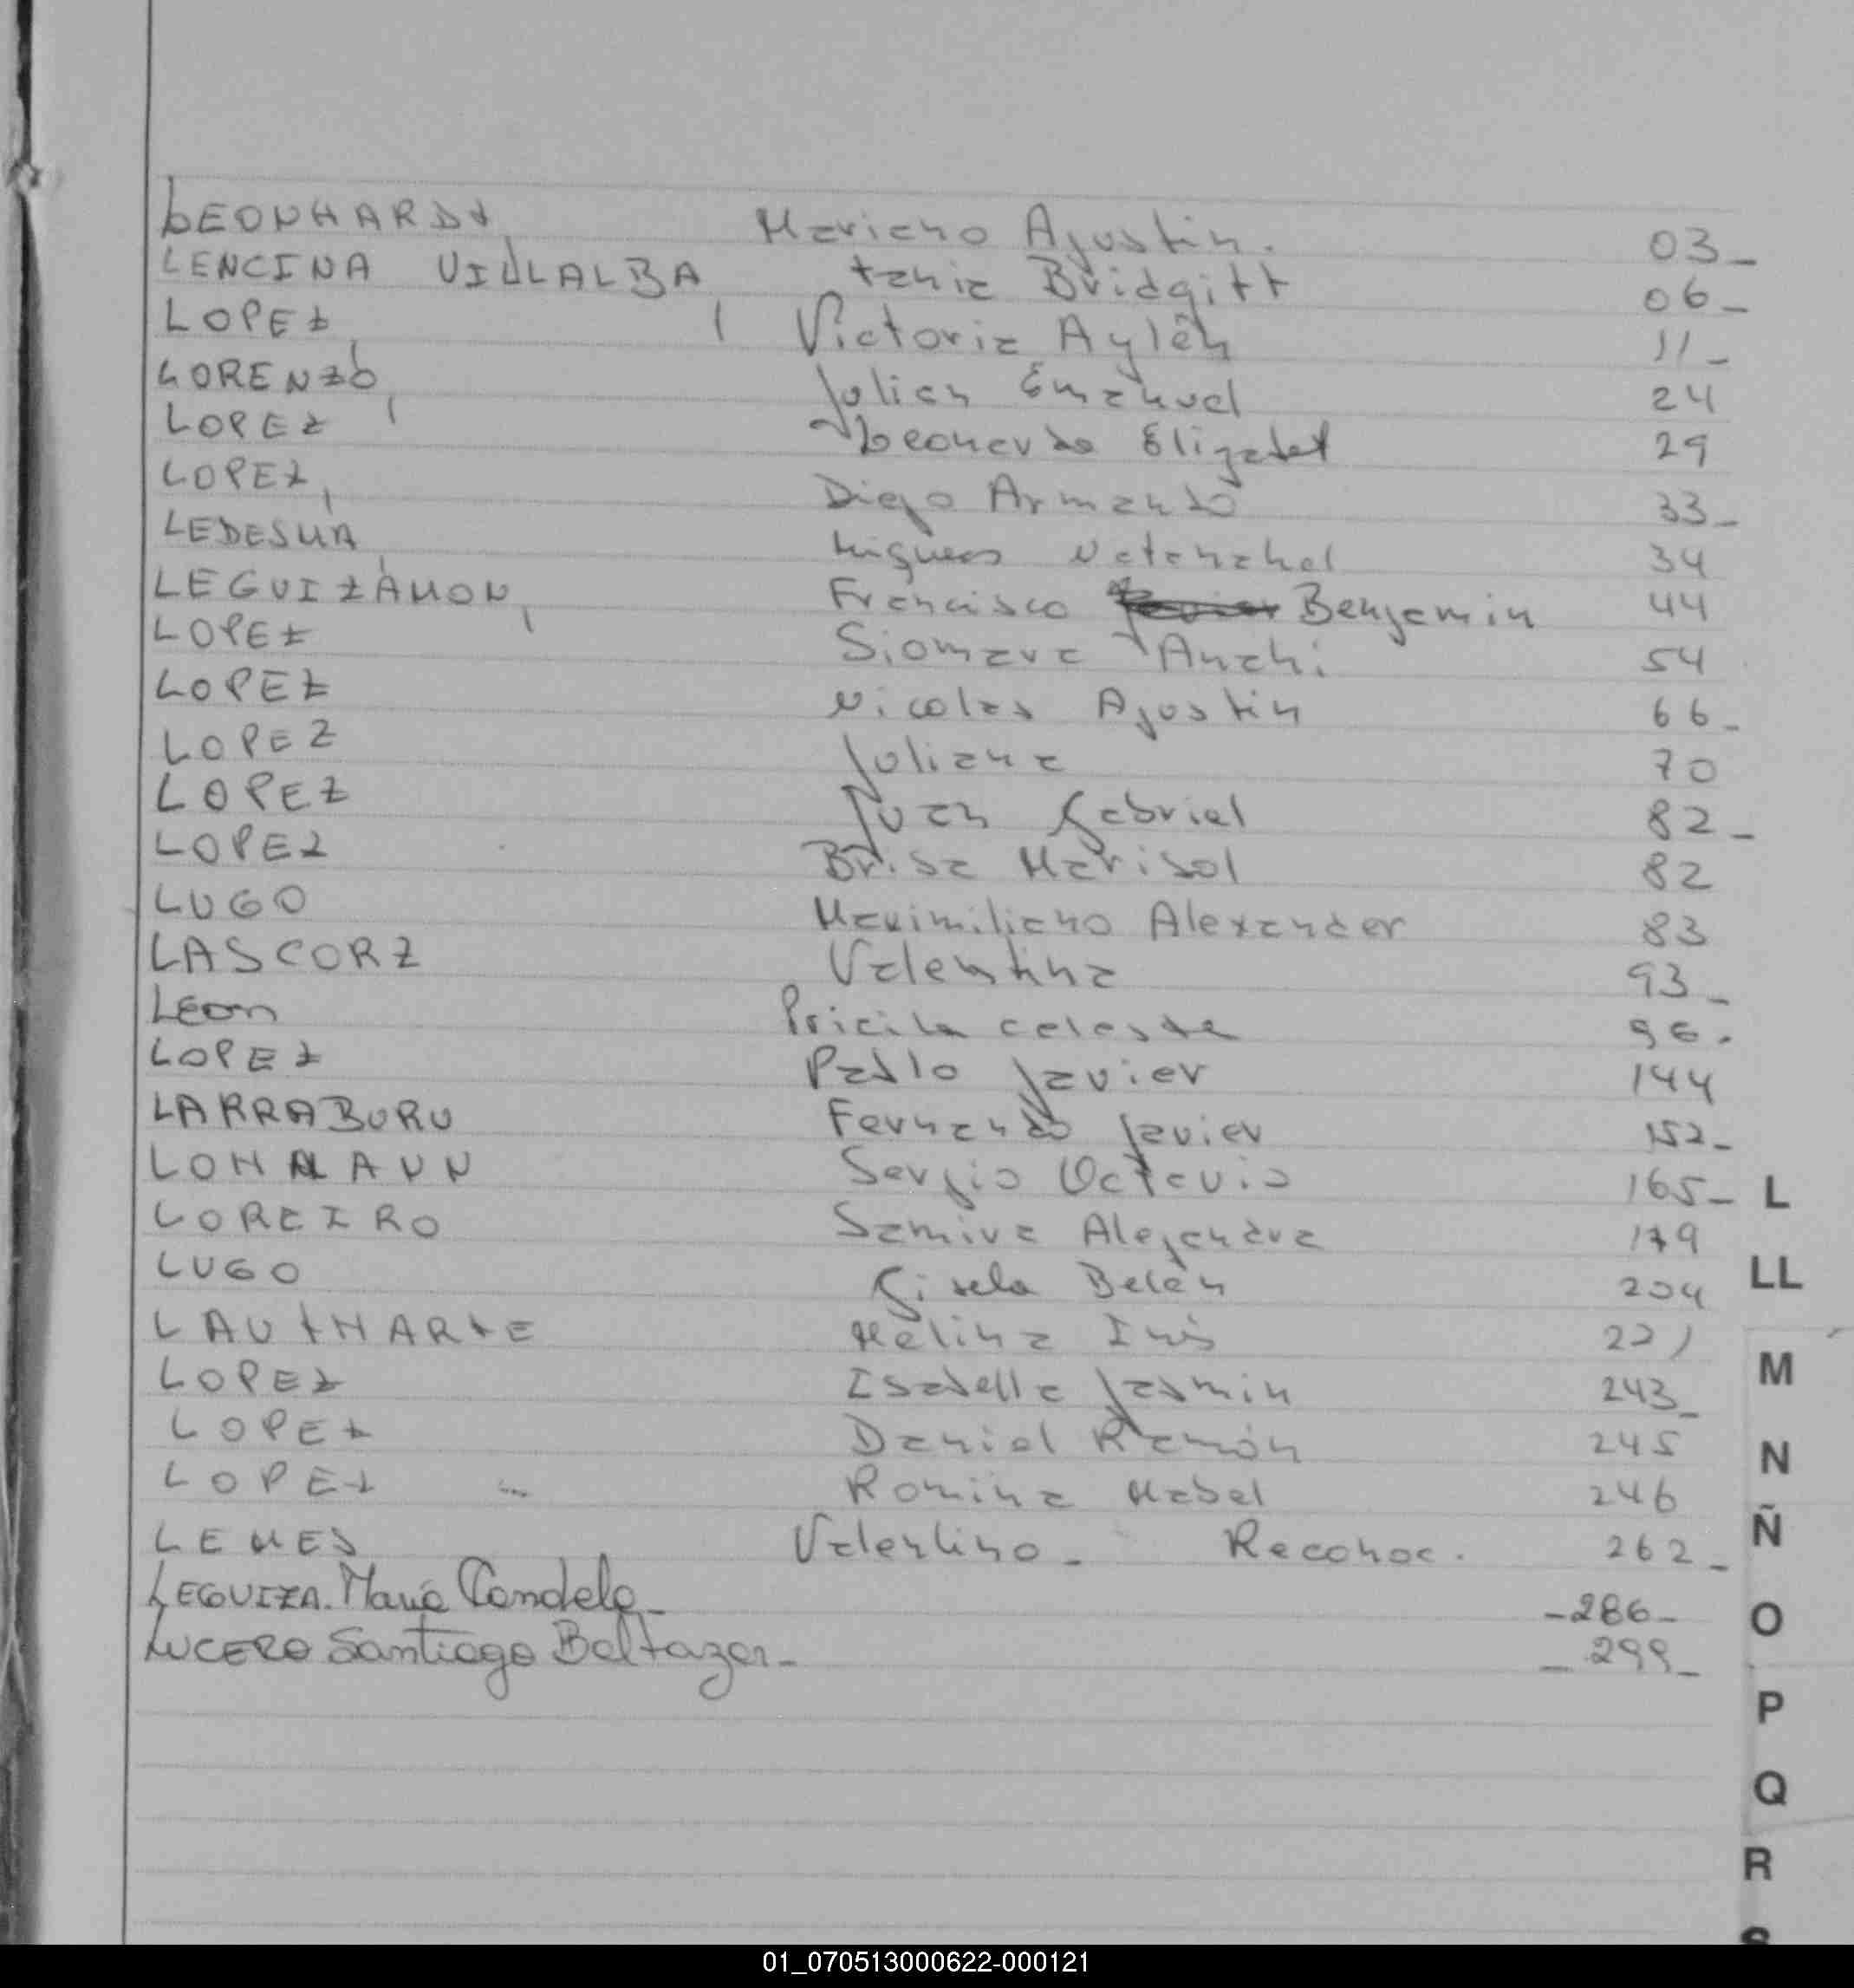 LEONHARDt, Mariano Agustin. 03_
LENCINA VILLALBA, tania Bridgitt 06_
LOPEZ, Victoria Aylén 11_
LORENZO, Julian Emanuel 24
LOPEZ Leonardo Elizabet 29
LOPEZ, Diego Armando 33_
LEDESMA, Natanahel 34
LEGUIZAMON, Francisco Benjamin 44
LOPEZ Siomara Anahi 54
LOPEZ Nicolas Agustin 66_
LOPEZ Juliana 70
LOPEZ Juan Gabriel 82_
LOPEZ Brisa Marisol 82
LUGO Maximiliano Alexander 83
LASCORZ Valentina 93_
Leon Pricila celeste 96.
LOPEZ Pablo Javier 144
LARRABURU Fernando Javier 152_
LOHMANN Sergio Octavio 165_
LOREIRO Samira Alejandra 179
LUGO Gisela Belén 204
LAUtHARtE Melina Inés 221
LOPEZ Isabella Jasmin 243_
LOPEZ Daniel Ramón 245
LOPEZ Romina Mabel 246
LEMES Valentino_ Reconoc. 262_
LEGUIZA. María Candela_ _286_
LUCERO Santiago Baltazar_ _299_
L
LL
M
N
Ñ
O
P
Q
R
S
01_070513000622-000121